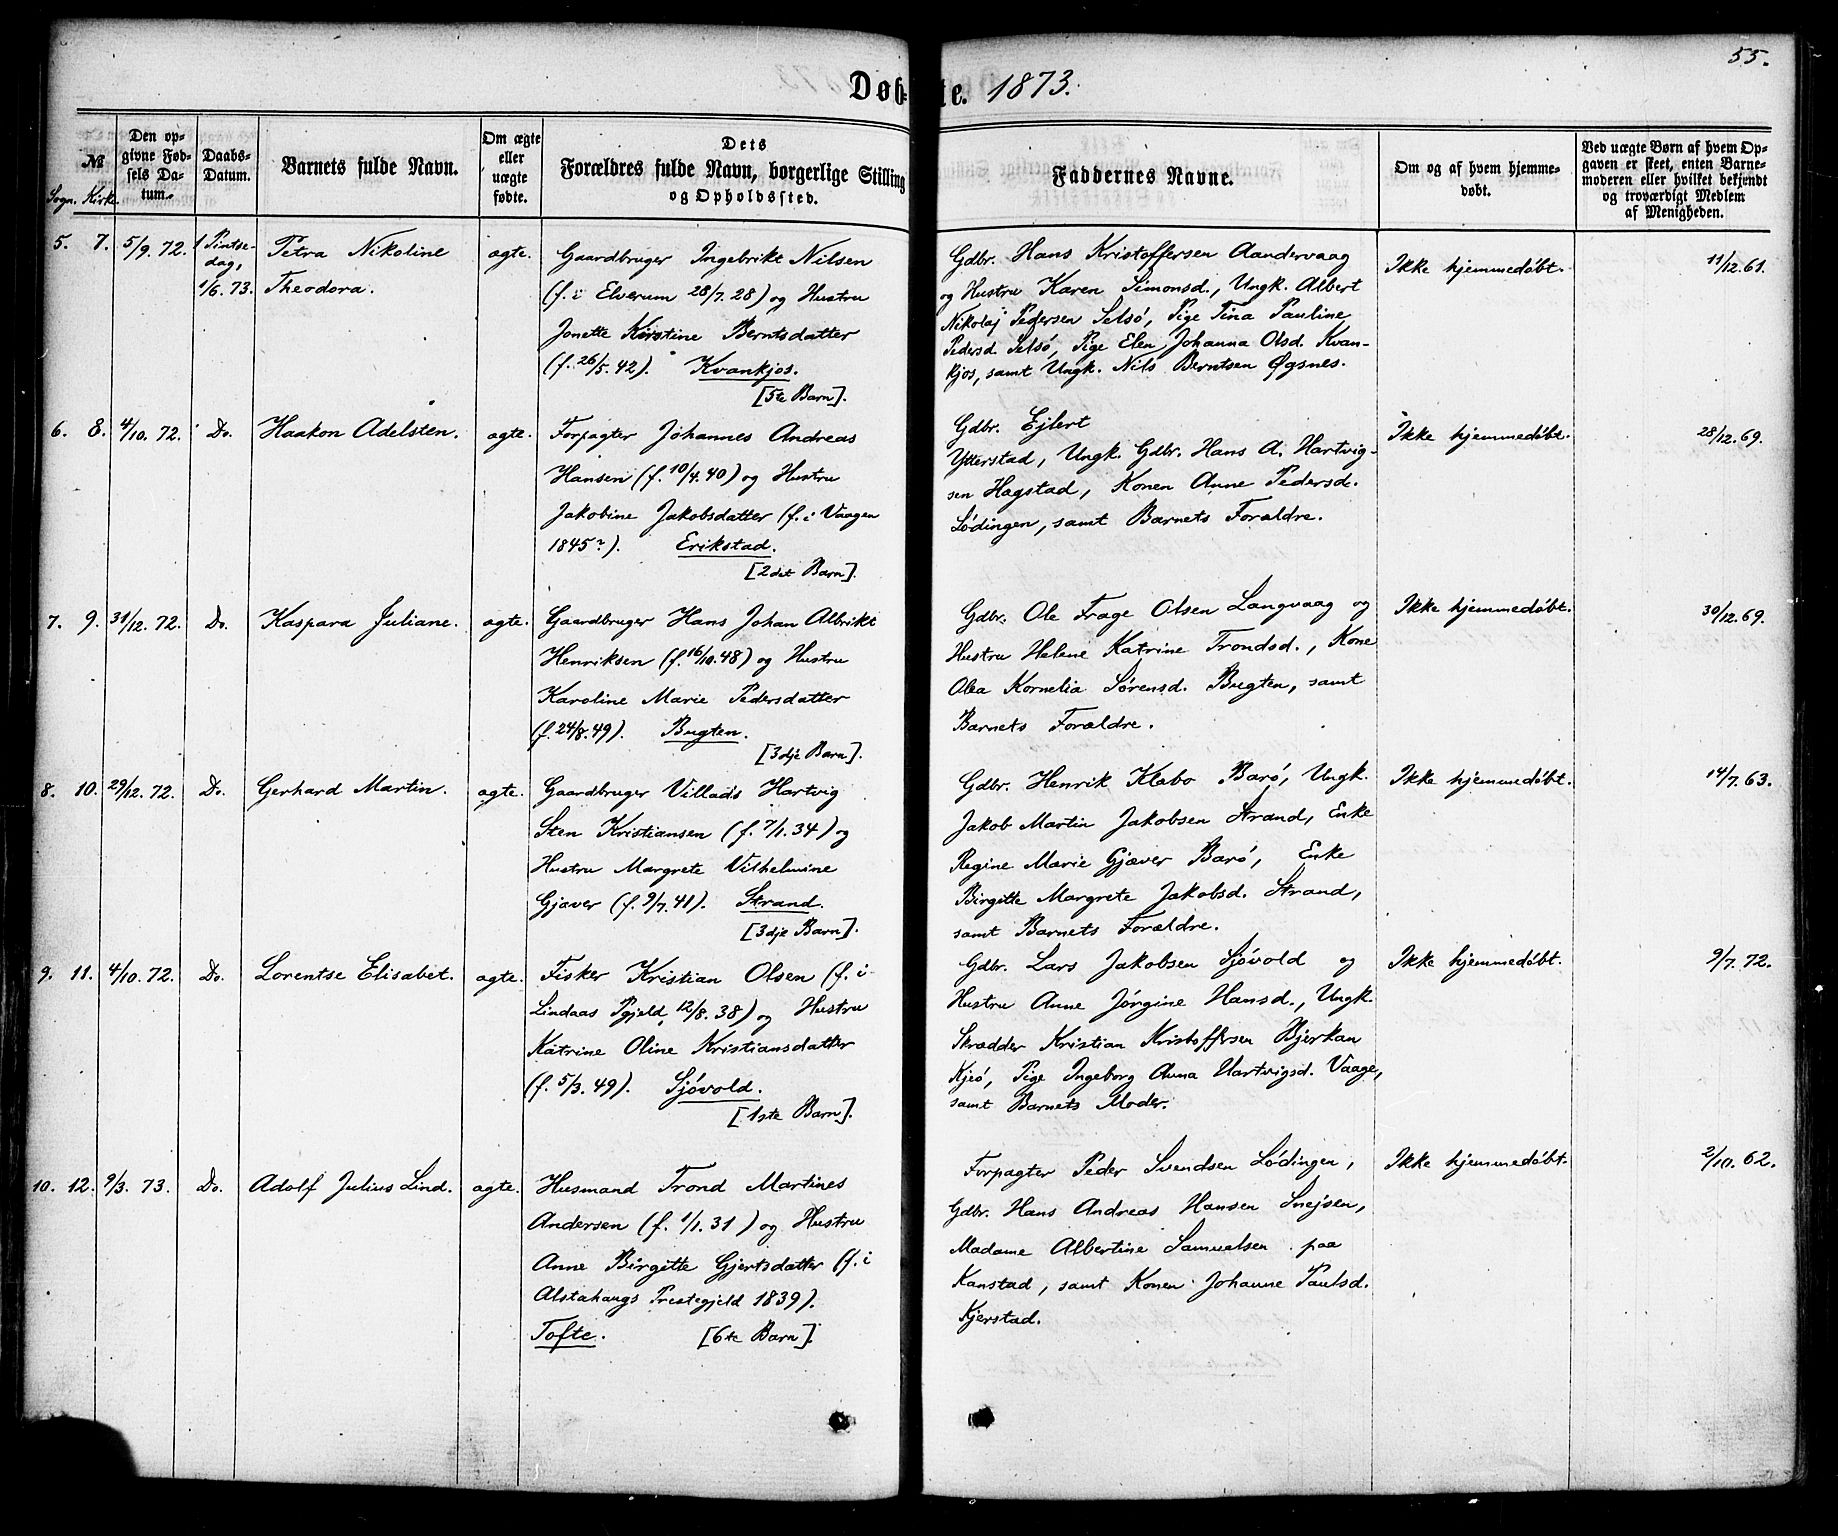 55.
Døb- te. 1873.
№
Sogn. Kirke.
Den op-
givne Fød-
sels Da-
tum.
Daabs-
Datum.
Barnets fulde Navn.
Om ægte
eller
uægte
fødte.
Dets
Forældres fulde Navn, borgerlige Stilling
og Opholdssted.
Faddernes Navne.
Om og af hvem hjemme-
døbt.
Ved uægte Børn af hvem Op-
gaven er skeet, enten Barne-
moderen eller hvilket bekjendt
og troværdigt Medlem
af Menigheden.
5. 7. 5/9. 72.
1 Pintse-
dag,
1/6. 73.
Petra Nikoline
Theodora.
ægte.
Gaardbruger Ingebrikt Nilsen
(f. i Elverum 28/7. 28) og Hustru
Jonette Kirstine Berntsdatter
(f. 26/5. 42). Kvankjos.
[5te Barn].
Gdbr. Hans Kristoffersen Aandervaag
og Hustru Karen Simonsd., Ungk. Albert
Nikolaj Pedersen Selsö, Pige Tina Pauline
Pedersd. Selsö, Pige Elen Johanna Olsd. Kvan-
kjos, samt Ungk. Nils Berntsen Øgsnes.
Ikke hjemmedöbt.
11/12. 61.
6. 8. 4/10. 72. Do.
Haakon Adelsten.
ægte.
Forpagter Johannes Andreas
Hansen (f. 10/4. 40) og Hustru
Jakobine Jakobsdatter (f. i Vaagen
1845?). Erikstad.
[2det Barn].
Gdbr. Ejlert
Ytterstad, Ungk. Gdbr. Hans A. Hartvig-
sen Hagstad, Konen Anne Pedersd.
Lödingen, samt Barnets Foraldre.
Ikke hjemmedöbt.
28/12. 69.
7. 9. 31/12. 72. Do.
Kaspara Juliane.
ægte.
Gaardbruger Hans Johan Albrikt
Henriksen (f. 16/10. 48) og Hustru
Karoline Marie Pedersdatter
(f. 24/8. 49). Bugten.
[3dje Barn].
Gdbr. Ole Trage Olsen Langvaag og
Hustru Helene Katrine Trondsd., Kone
Olea Kornelia Sörensd. Bugten, samt
Barnets Forældre.
Ikke hjemmedöbt.
30/12. 69.
8. 10. 29/12. 72. Do.
Gerhard Martin.
ægte.
Gaardbruger Villads Hartvig
Sten Kristiansen (f. 7/1. 34) og
Hustru Margrete Vilhelmine
Gjæver (f. 9/7. 41). Strand.
[3dje Barn].
Gdbr. Henrik Klabo Barö, Ungk.
Jakob Martin Jakobsen Strand, Enke
Regine Marie Gjæver Barö, Enke
Birgitte Margrete Jakobsd. Strand,
samt Barnets Forældre.
Ikke hjemmedöbt.
14/7. 63.
9. 11. 4/10. 72. Do.
Lorentse Elisabet.
ægte.
Fisker Kristian Olsen (f. i
Lindaas Pgjeld, 12/8. 38) og Hustru
Katrine Oline Kristiansdatter
(f. 5/3. 49). Sjövold.
[1ste Barn].
Gdbr. Lars Jakobsen Sjövold og
Hustru Anne Jörgine Hansd., Ungk.
Skrædder Kristian Kristoffersen Bjerkan
Kjeö, Pige Ingeborg Anna Hartvigsd. Vaage,
samt Barnets Moder.
Ikke hjemmedöbt.
9/7. 72.
10. 12. 9/3. 73. Do.
Adolf Julius Lind.
ægte.
Husmand Trond Martines
Andersen (f. 1/1. 31) og Hustru
Anne Birgitte Gjertsdatter (f. i
Alstahaugs Prestegjeld 1839).
Tofte. [6te Barn].
Forpagter Peder Svendsen Lödingen,
Gdbr. Hans Andreas Hansen Snejsen,
Madame Albertine Samuelsen paa
Kanstad, samt Konen Johanne Paulsd.
Kjerstad.
Ikke hjemmedöbt.
2/10. 62.